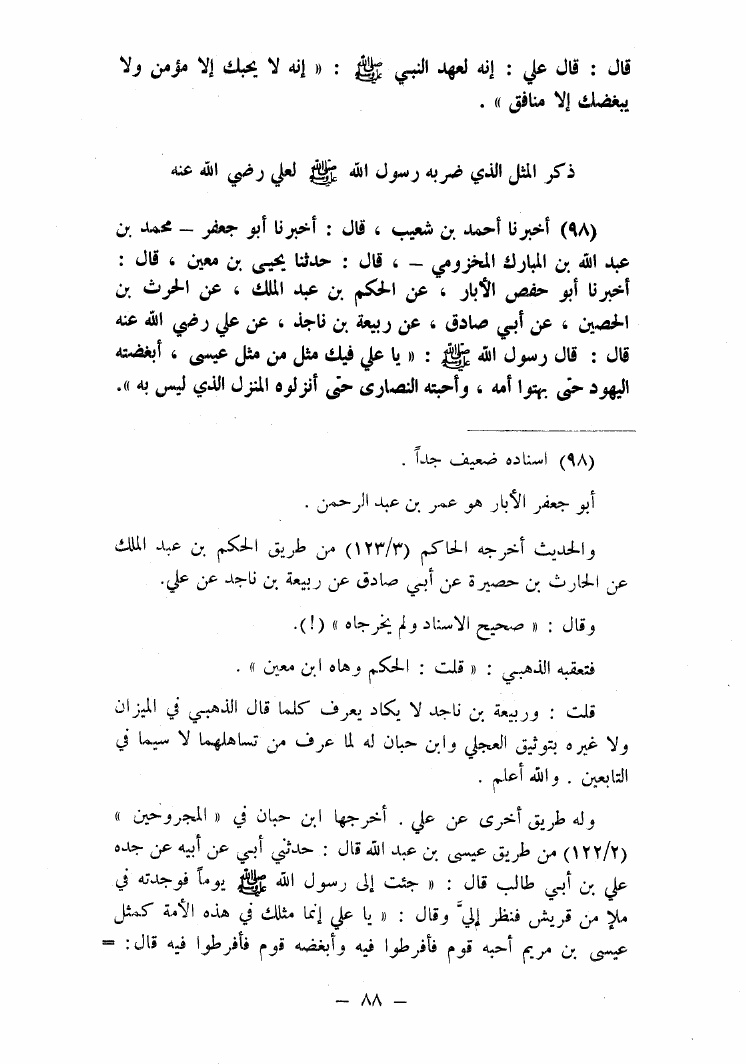 قال : قال علي : إنه لعهد النبي ﷺ : « إنه لا يحبك إلا مؤمن ولا
يبغضك إلا منافق » .
ذكر المثل الذي ضربه رسول الله ﷺ لعلي رضي الله عنه
(٩٨) أخبرنا أحمد بن شعيب ، قال : أخبرنا أبو جعفر – محمد بن
عبد الله بن المبارك المخزومي – ، قال : حدثنا يحيى بن معين ، قال :
أخبرنا أبو حفص الأبار ، عن الحكم بن عبد الملك ، عن الحرث بن
الحصين ، عن أبي صادق ، عن ربيعة بن ناجذ ، عن علي رضي الله عنه
قال : قال رسول الله ﷺ : « يا علي فيك مثل من مثل عيسى ، أبغضته
اليهود حتى بهتوا أمه ، وأحبته النصارى حتى أنزلوه المنزل الذي ليس به ».
(٩٨) اسناده ضعيف جداً .
أبو جعفر الأبار هو عمر بن عبد الرحمن .
والحديث أخرجه الحاكم (١٢٣/٣) من طريق الحكم بن عبد الملك
عن الحارث بن حصيرة عن أبي صادق عن ربيعة بن ناجد عن علي.
وقال : « صحيح الاسناد ولم يخرجاه » (!).
فتعقبه الذهبي : « قلت : الحكم وهاه ابن معين » .
قلت : وربيعة بن ناجد لا يكاد يعرف كلما قال الذهبي في الميزان
ولا غيره بتوثيق العجلي وابن حبان له لما عرف من تساهلهما لا سيما في
التابعين . والله أعلم .
وله طريق أخرى عن علي . أخرجها ابن حبان في « المجروحين »
(١٢٢/٢) من طريق عيسى بن عبد الله قال : حدثني أبي عن أبيه عن جده
علي بن أبي طالب قال : « جئت إلى رسول الله ﷺ يوماً فوجدته في
ملإ من قريش فنظر إليَّ وقال : « يا علي إنما مثلك في هذه الأمة كمثل
عيسى بن مريم أحبه قوم فأفرطوا فيه وأبغضه قوم فأفرطوا فيه قال : =
– ٨٨ –